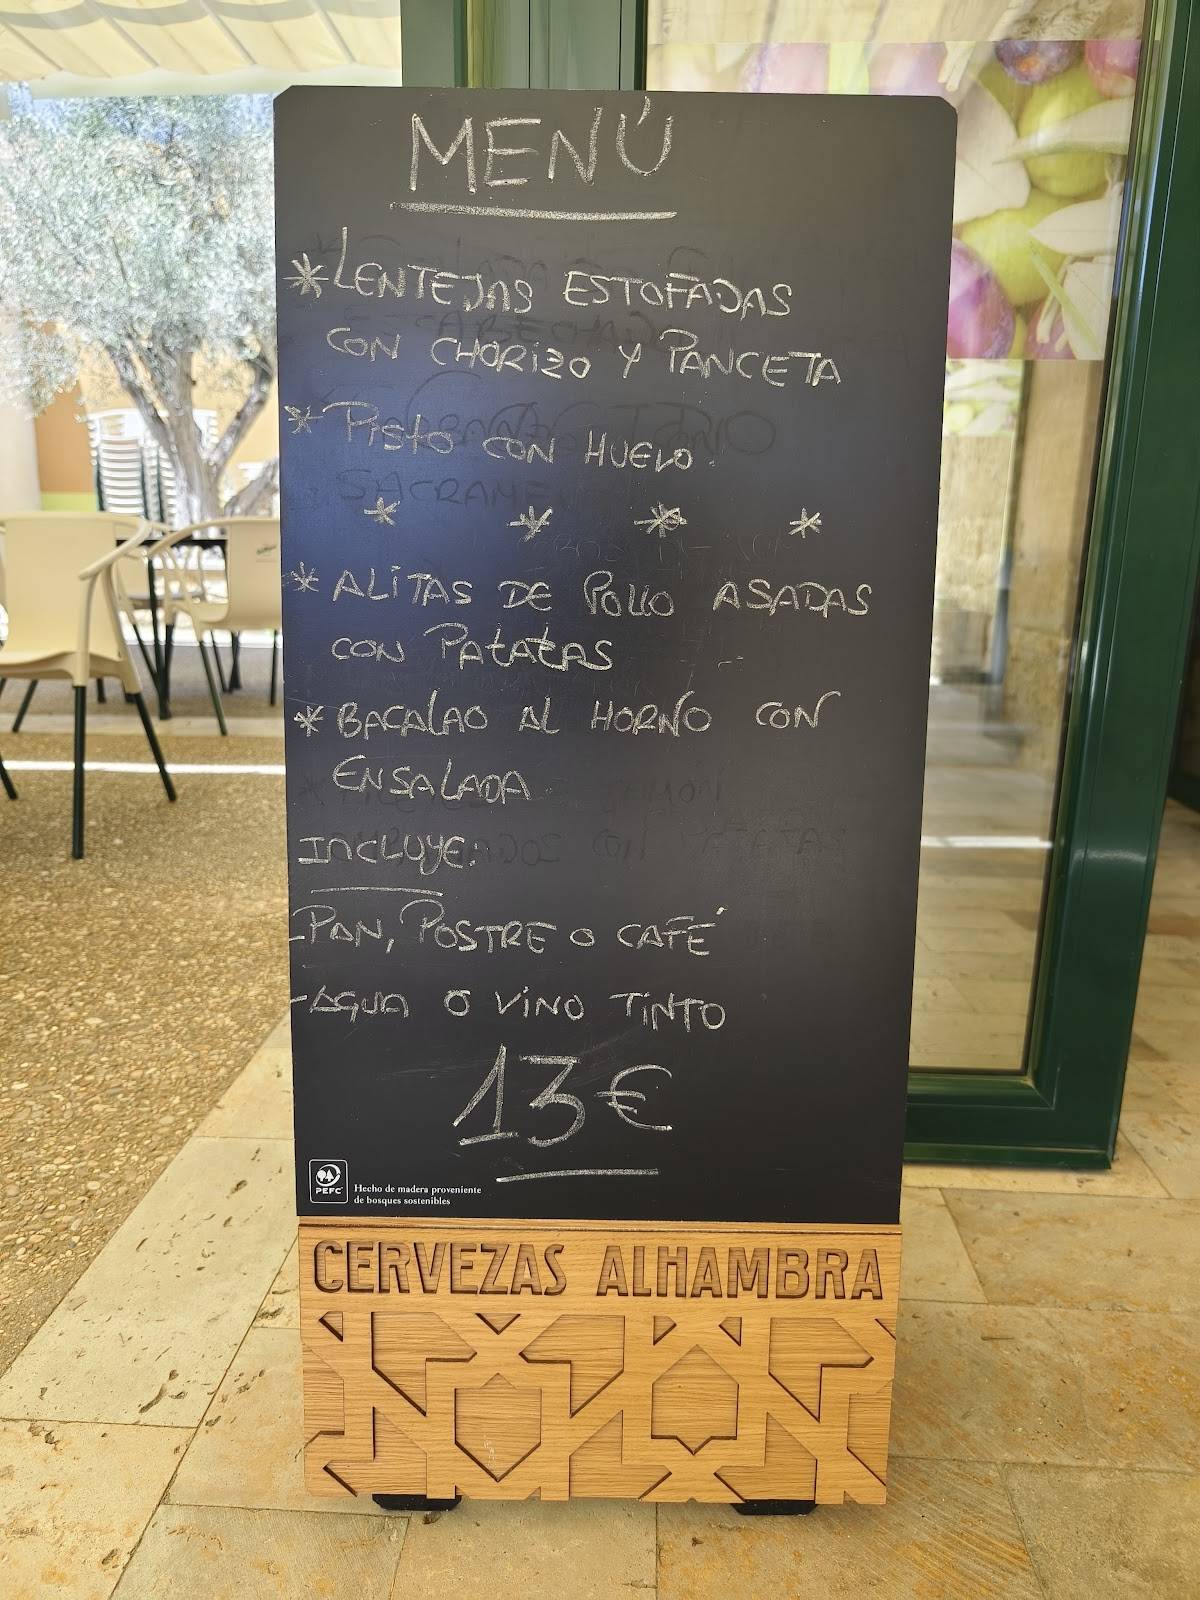 MENÚ
*LENTEJAS ESTOFADAS
CON CHORIZO Y PANCETA
* PISTO CON HUEVO.
* * * *
* ALITAS DE POLLO ASADAS
CON PATATAS
* BACALAO AL HORNO CON
ENSALADA
INCLUYE:
-PAN, POSTRE O CAFÉ
-AGUA O VINO TINTO
13€
PEFC
Hecho de madera proveniente
de bosques sostenibles
CERVEZAS ALHAMBRA